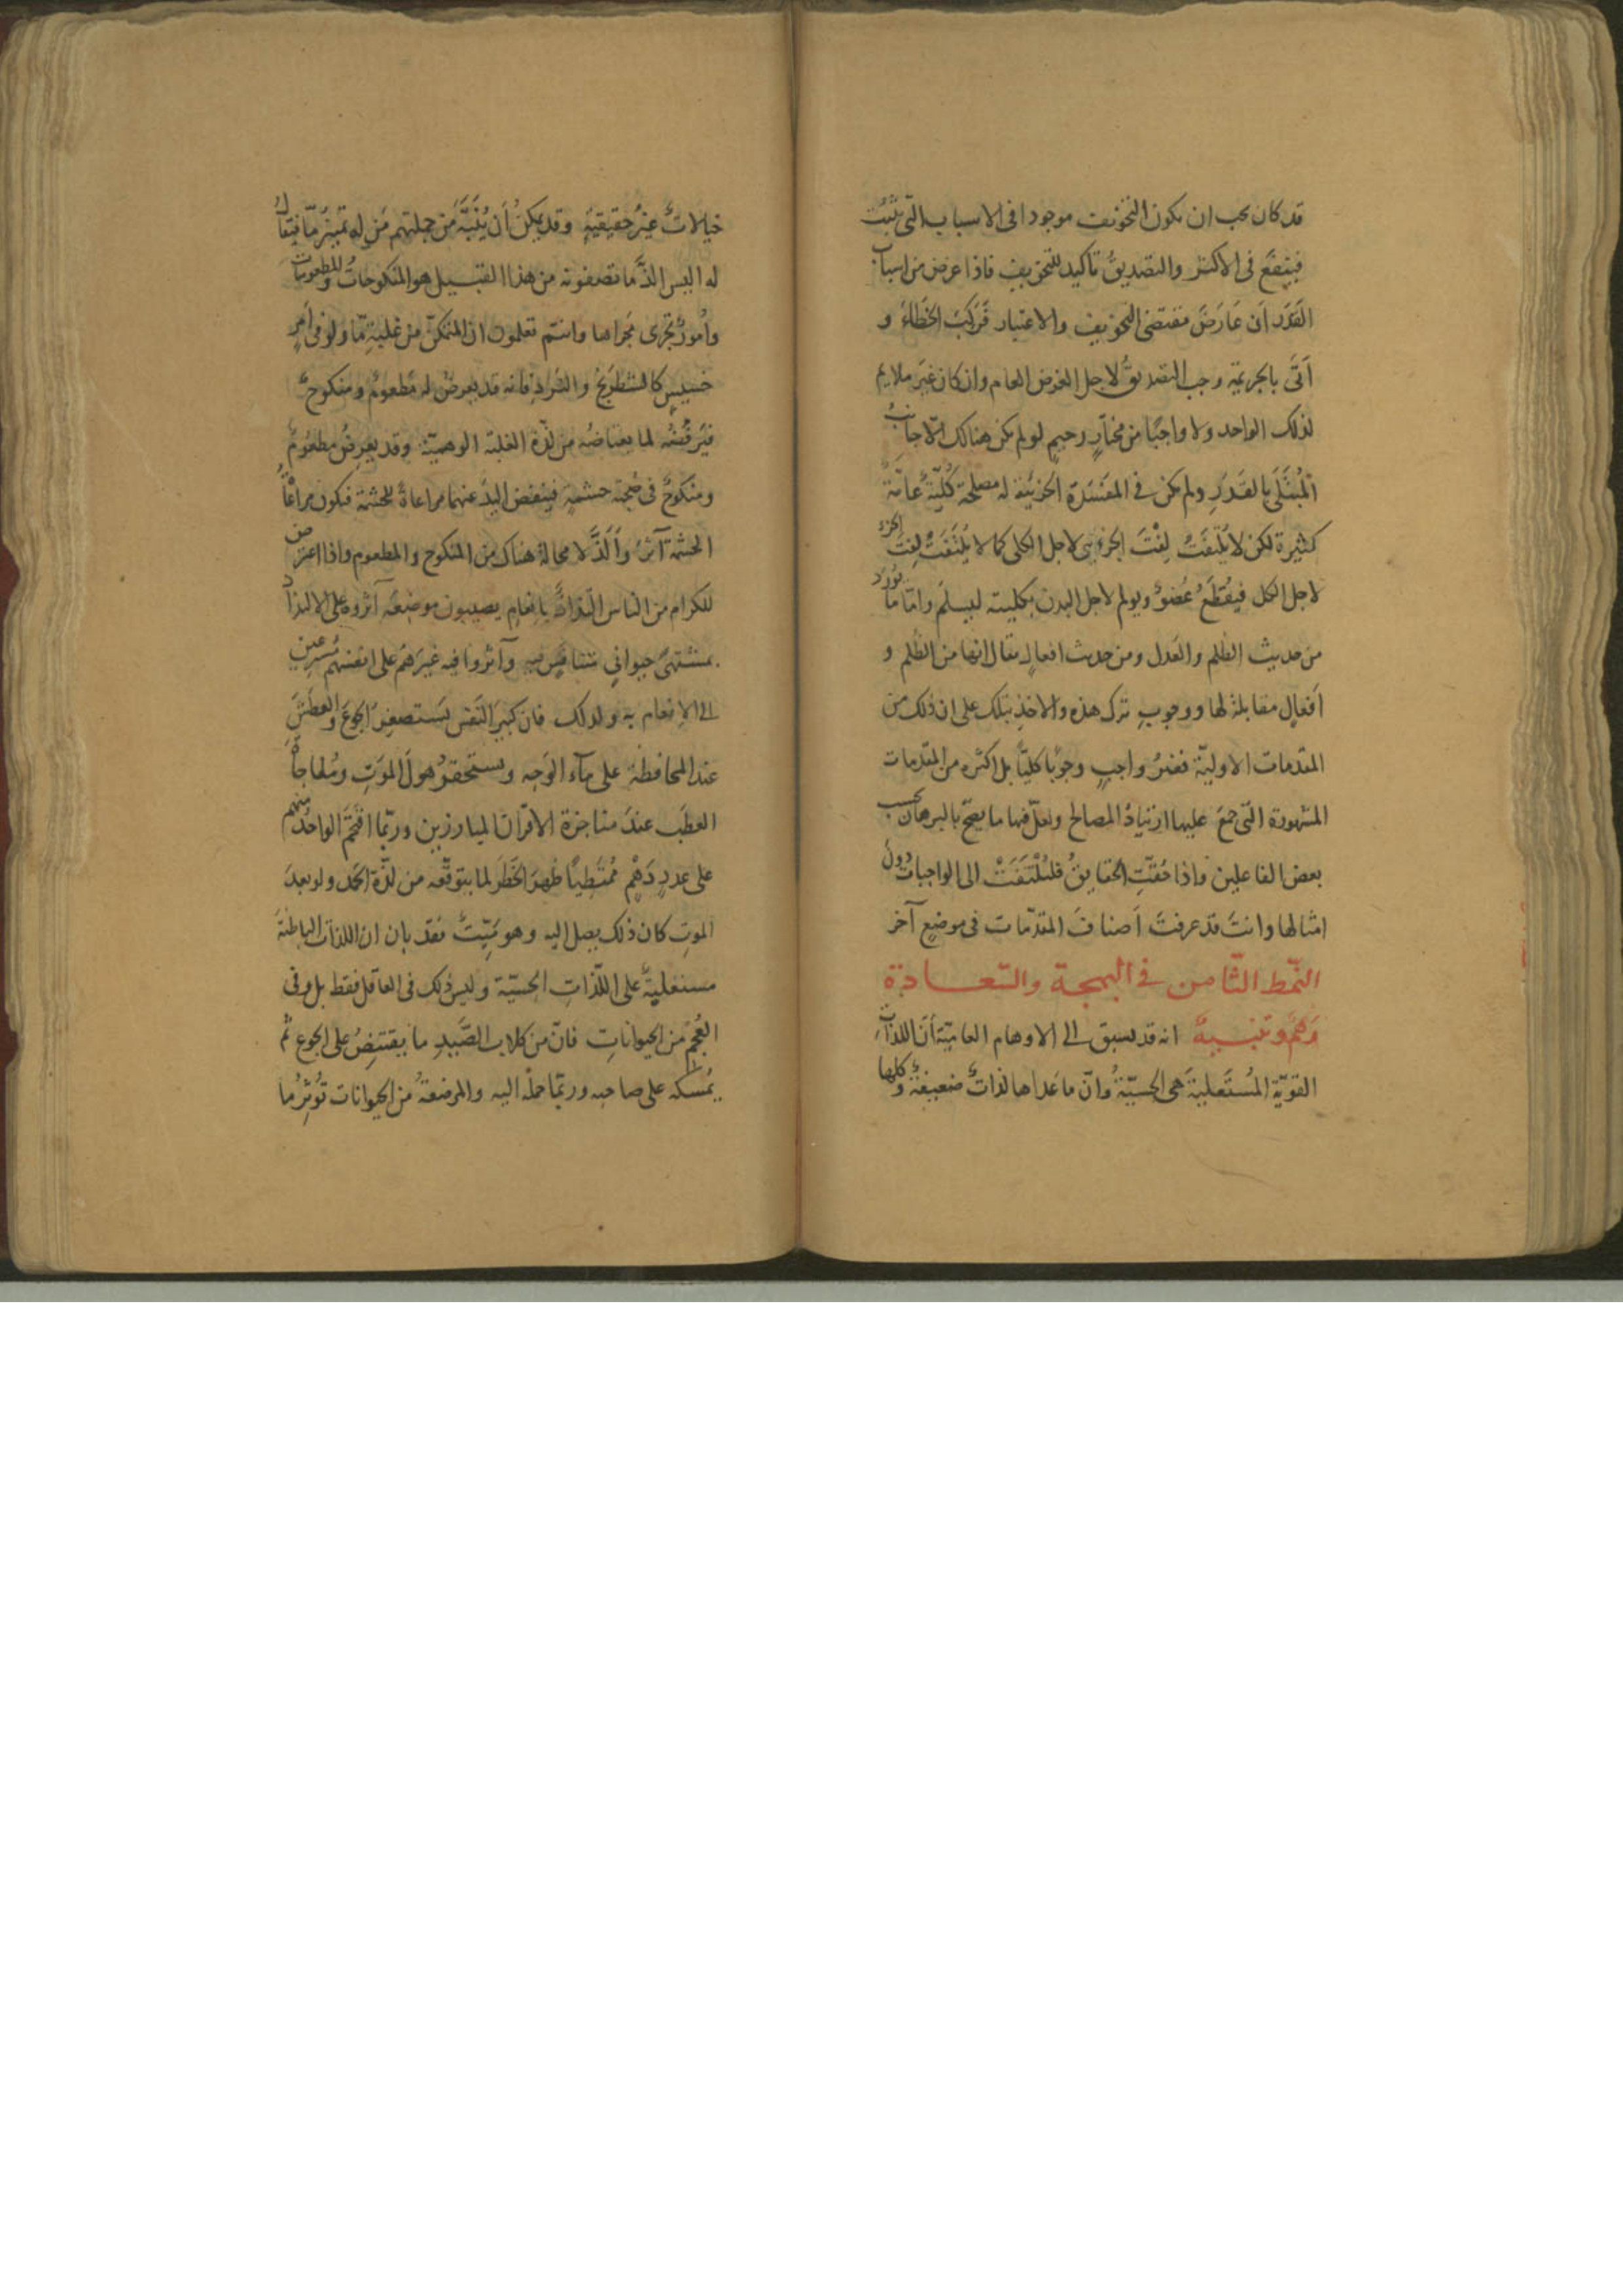 قد كان يجب ان يكون التخويف موجودا فى الاسباب التى تثبت
فينفع فى الاكثر والتصديق تاكيد للتخويف فاذا عرض من اسباب
القدر ان عارض مقتضى التخويف والاعتبار فركب الخطاء و
اتى بالجريمة وجب التصديق لاجل الغرض العام وان كان غير ملايم
لذلك الواحد ولا واجبا من مختار رحيم لو لم يكن هنالك الا جانب
المبتلى بالقدر ولم يكن فى المفسدة الجزئية له مصلحة كلية عامة
كثيرة لكن لا يلتفت لفت الجزئى لاجل الكلى كما لا يلتفت لفت الجزء
لاجل الكل فيقطع عضو ويولم لاجل البدن بكليته ليسلم واما ما يورد
من حديث الظلم والعدل ومن حديث افعال يقال انها من الظلم و
افعال مقابلة لها ووجوب ترك هذه والاخذ بتلك على ان ذلك من
المقدمات الاولية فغير واجب وجوبا كليا بل اكثره من المقدمات
المشهورة التى جمع عليها ارتياد المصالح ولعل فيها ما يصح بالبرهان بحسب
بعض الفاعلين واذا حققت الحقايق فلتلتفت الى الواجبات دون
امثالها وانت قد عرفت اصناف المقدمات فى موضع آخر
النمط الثامن فى البهجة والسعادة
وهم وتنبيه انه قد يسبق الى الاوهام العامية أن اللذات
القوية المستعلية هى الحسية وان ما عداها لذات ضعيفة وكلها
خيالات غير حقيقية وقد يمكن أن ينبه من جملتهم من له تميز ما فيقال
له اليس الذ ما تصفونه من هذا القبيل هو المنكوحات والمطعومات
وامور تجرى مجراها وانتم تعلمون ان المتمكن من غلبة ما ولو فى امر
خسيس كالشطرنج والنرد فانه قد يعرض له مطعوم ومنكوح
فيرفضه لما يعتاضه من لذة الغلبة الوهمية وقد يعرض مطعوم
ومنكوح فى صحبة حشمة فينفض اليد عنهما مراعاة للحشمة فيكون مراعاة
الحشمة آثر وألذ لا محالة هناك من المنكوح والمطعوم واذا اعترض
للكرام من الناس التذاذ بانعام يصيبون موضعه آثروه على الالتذاذ
بمشتهى حيوانى متنافس فيه وآثروا فيه غيرهم على انفسهم مسرعين
الى الانعام به ولذلك فان كبير النفس يستصغر الجوع والعطش
عند المحافظة على ماء الوجه ويستحقر هول الموت ومفاجأة
العطب عند مناجزة الاقران المبارزين وربما اقتحم الواحد منهم
على عدد دهم ممتطيا ظهر الخطر لما يتوقعه من لذة الحمد ولو بعد
الموت كان ذلك يصل اليه وهو ميت فقد بان ان اللذات الباطنة
مستعلية على اللذات الحسية وليس ذلك فى العاقل فقط بل وفى
العجم من الحيوانات فان من كلاب الصيد ما يقتنص على الجوع ثم
يمسكه على صاحبه وربما حمله اليه والمرضعة من الحيوانات تؤثر ما